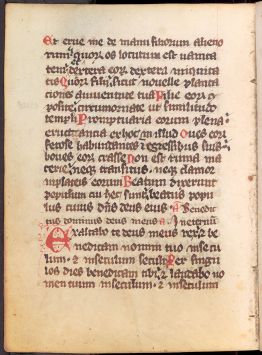 Et erue me de manu filiorum alieno
rum quorum os locutum est uanita
tem dextera eorum dextera iniquita
tis Quorum filii sicut nouelle planta
ciones a iuuentute sua Filie eorum co
posite circumornate ut similitudo
templi Promptuaria eorum plena
eructantia ex hoc in illud Oues eorum
fetose habundantes i egressibus suis
boues eorum crasse Non est ruina ma
cerie neqz transitus neqz clamor
in plateis eorum Beatum dixerunt
populum cui hec sunt beatus popu
lus cuius dns deus eius Benedic
tus dominus deus meus
Exaltabo te deus meus rex et be
nedicam nomini tuo in secu
lum et in seculum seculi Per singu
los dies benedicam tibi et laudabo no
men tuum in seculum et in seculum